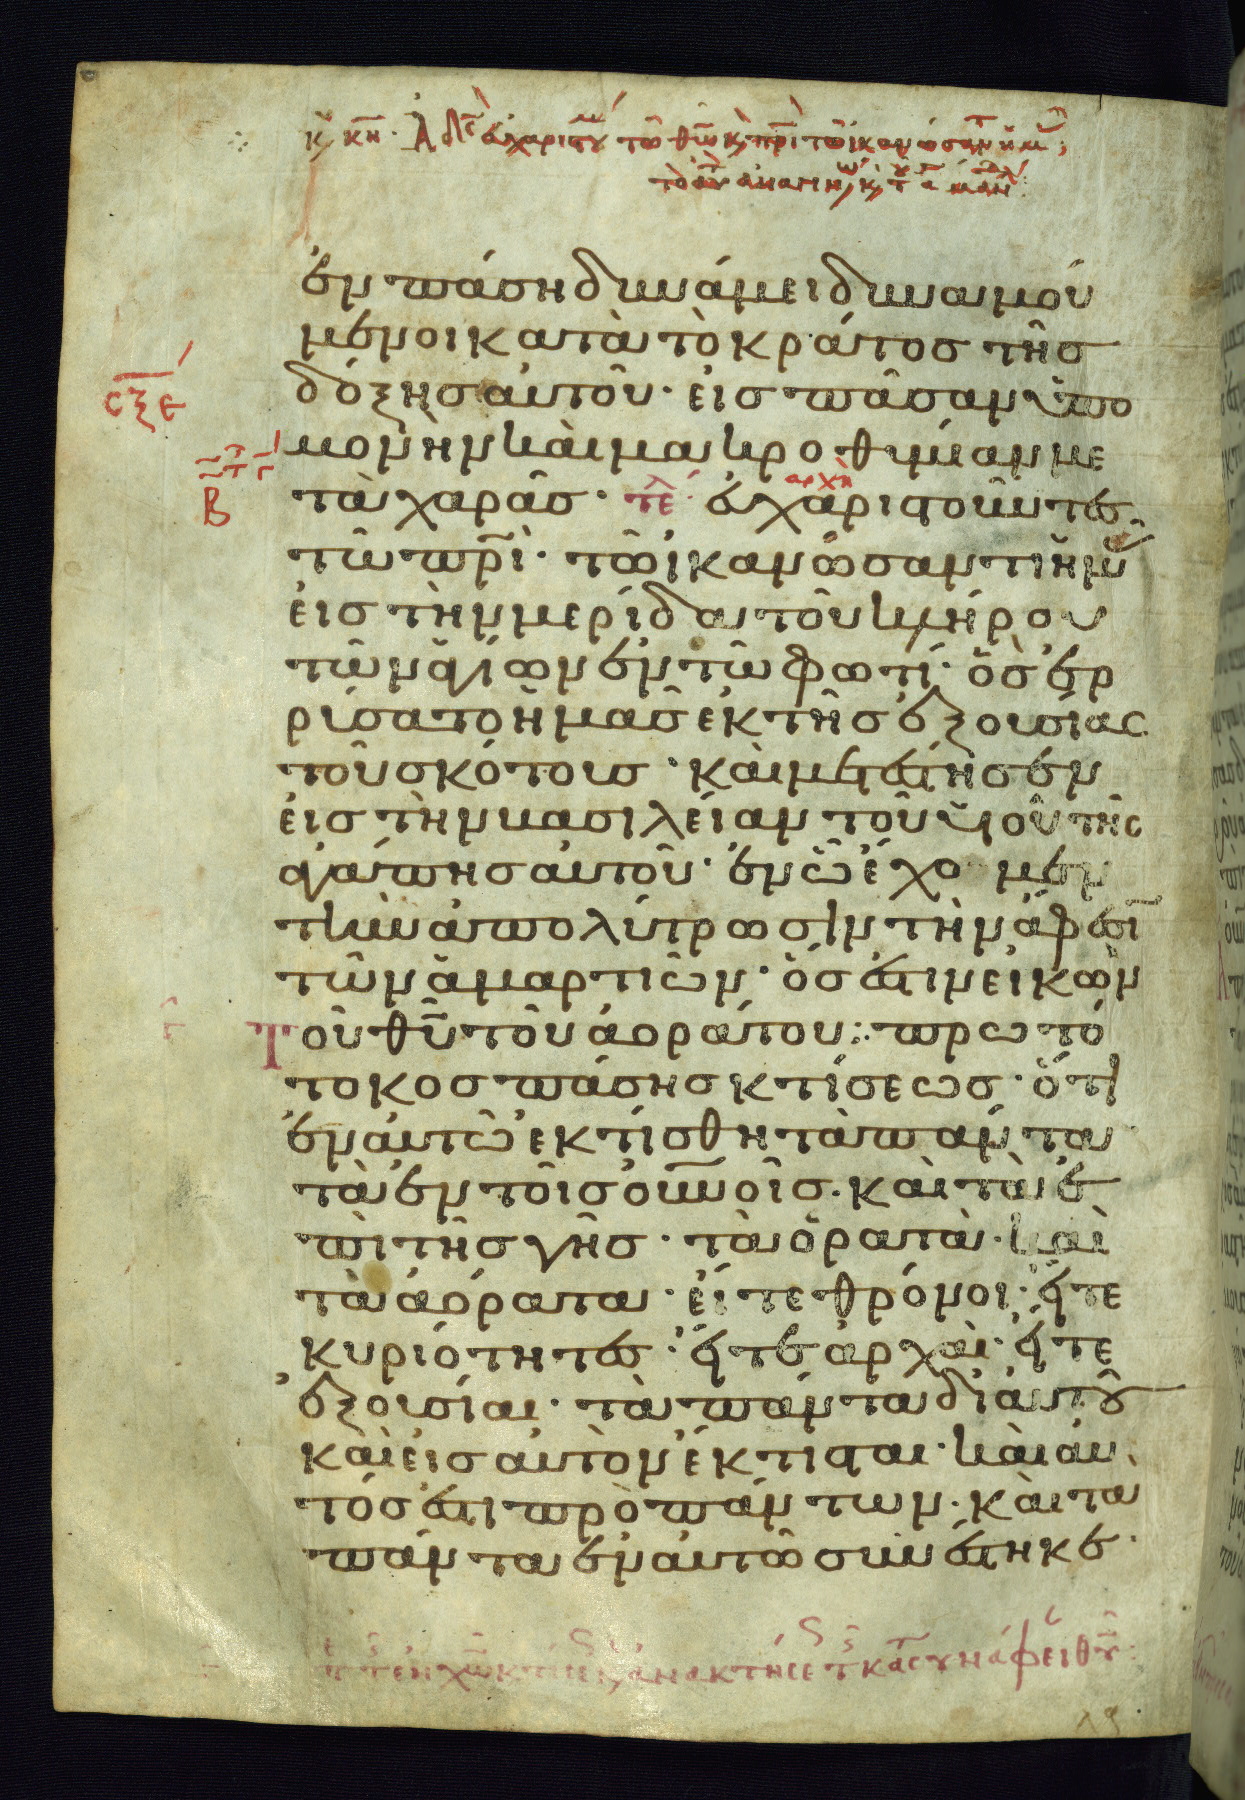 ἐν πάση δυνάμει δυναμού
μενοι κατὰ τὸ κράτος τῆς
δόξης αὐτοῦ· εἰς πᾶσαν ὑπο
μονὴν καὶ μακροθυμίαν με
τὰ χαρᾶς· τε αρχὴ εὐχαριστοῦντες
τῶ πρὶ· τῶ ἱκανώσαντι ἡμ
εἰς τὴν μερίδα τοῦ κλήρου
τῶν ἁγίων ἐν τῶ φωτί· ὃς ἐρ
ρύσατο ἡμᾶς ἐκ τῆς ἐξουσίας
τοῦ σκότους· καὶ μετέστησεν
εἰς τὴν βασιλείαν τοῦ υἱοῦ τῆς
ἀγάπης αὐτοῦ· ἐν ὧ ἔχο μεν
τὴν ἀπολύτρωσιν τὴν ἄφεσι
τῶν ἁμαρτιῶν· ὅς ἐστιν εἰκὼν
Τοῦ θῦ τοῦ ἀοράτου: πρωτό
τοκος πάσης κτίσεως· ὅτι
ἐν αὐτῶ ἐκτίσθη τὰ πάντα
τὰ ἐν τοῖς οὐνοῖς· καὶ τὰ ἐ
πὶ τῆς γῆς· τὰ ὁρατὰ· καὶ
τὰ ἀόρατα· εἴτε θρόνοι· εἴτε
κυριότητες· εἴτε ἀρχαὶ· εἴτε
ἐξουσίαι· τὰ πάντα δι' αὐτοῦ
καὶ εἰς αὐτὸν ἔκτισται· καὶ αὐ
τός ἐστι πρὸ πάντων· καὶ τα
πάντα ἐν αὐτῶ συνέστηκε·